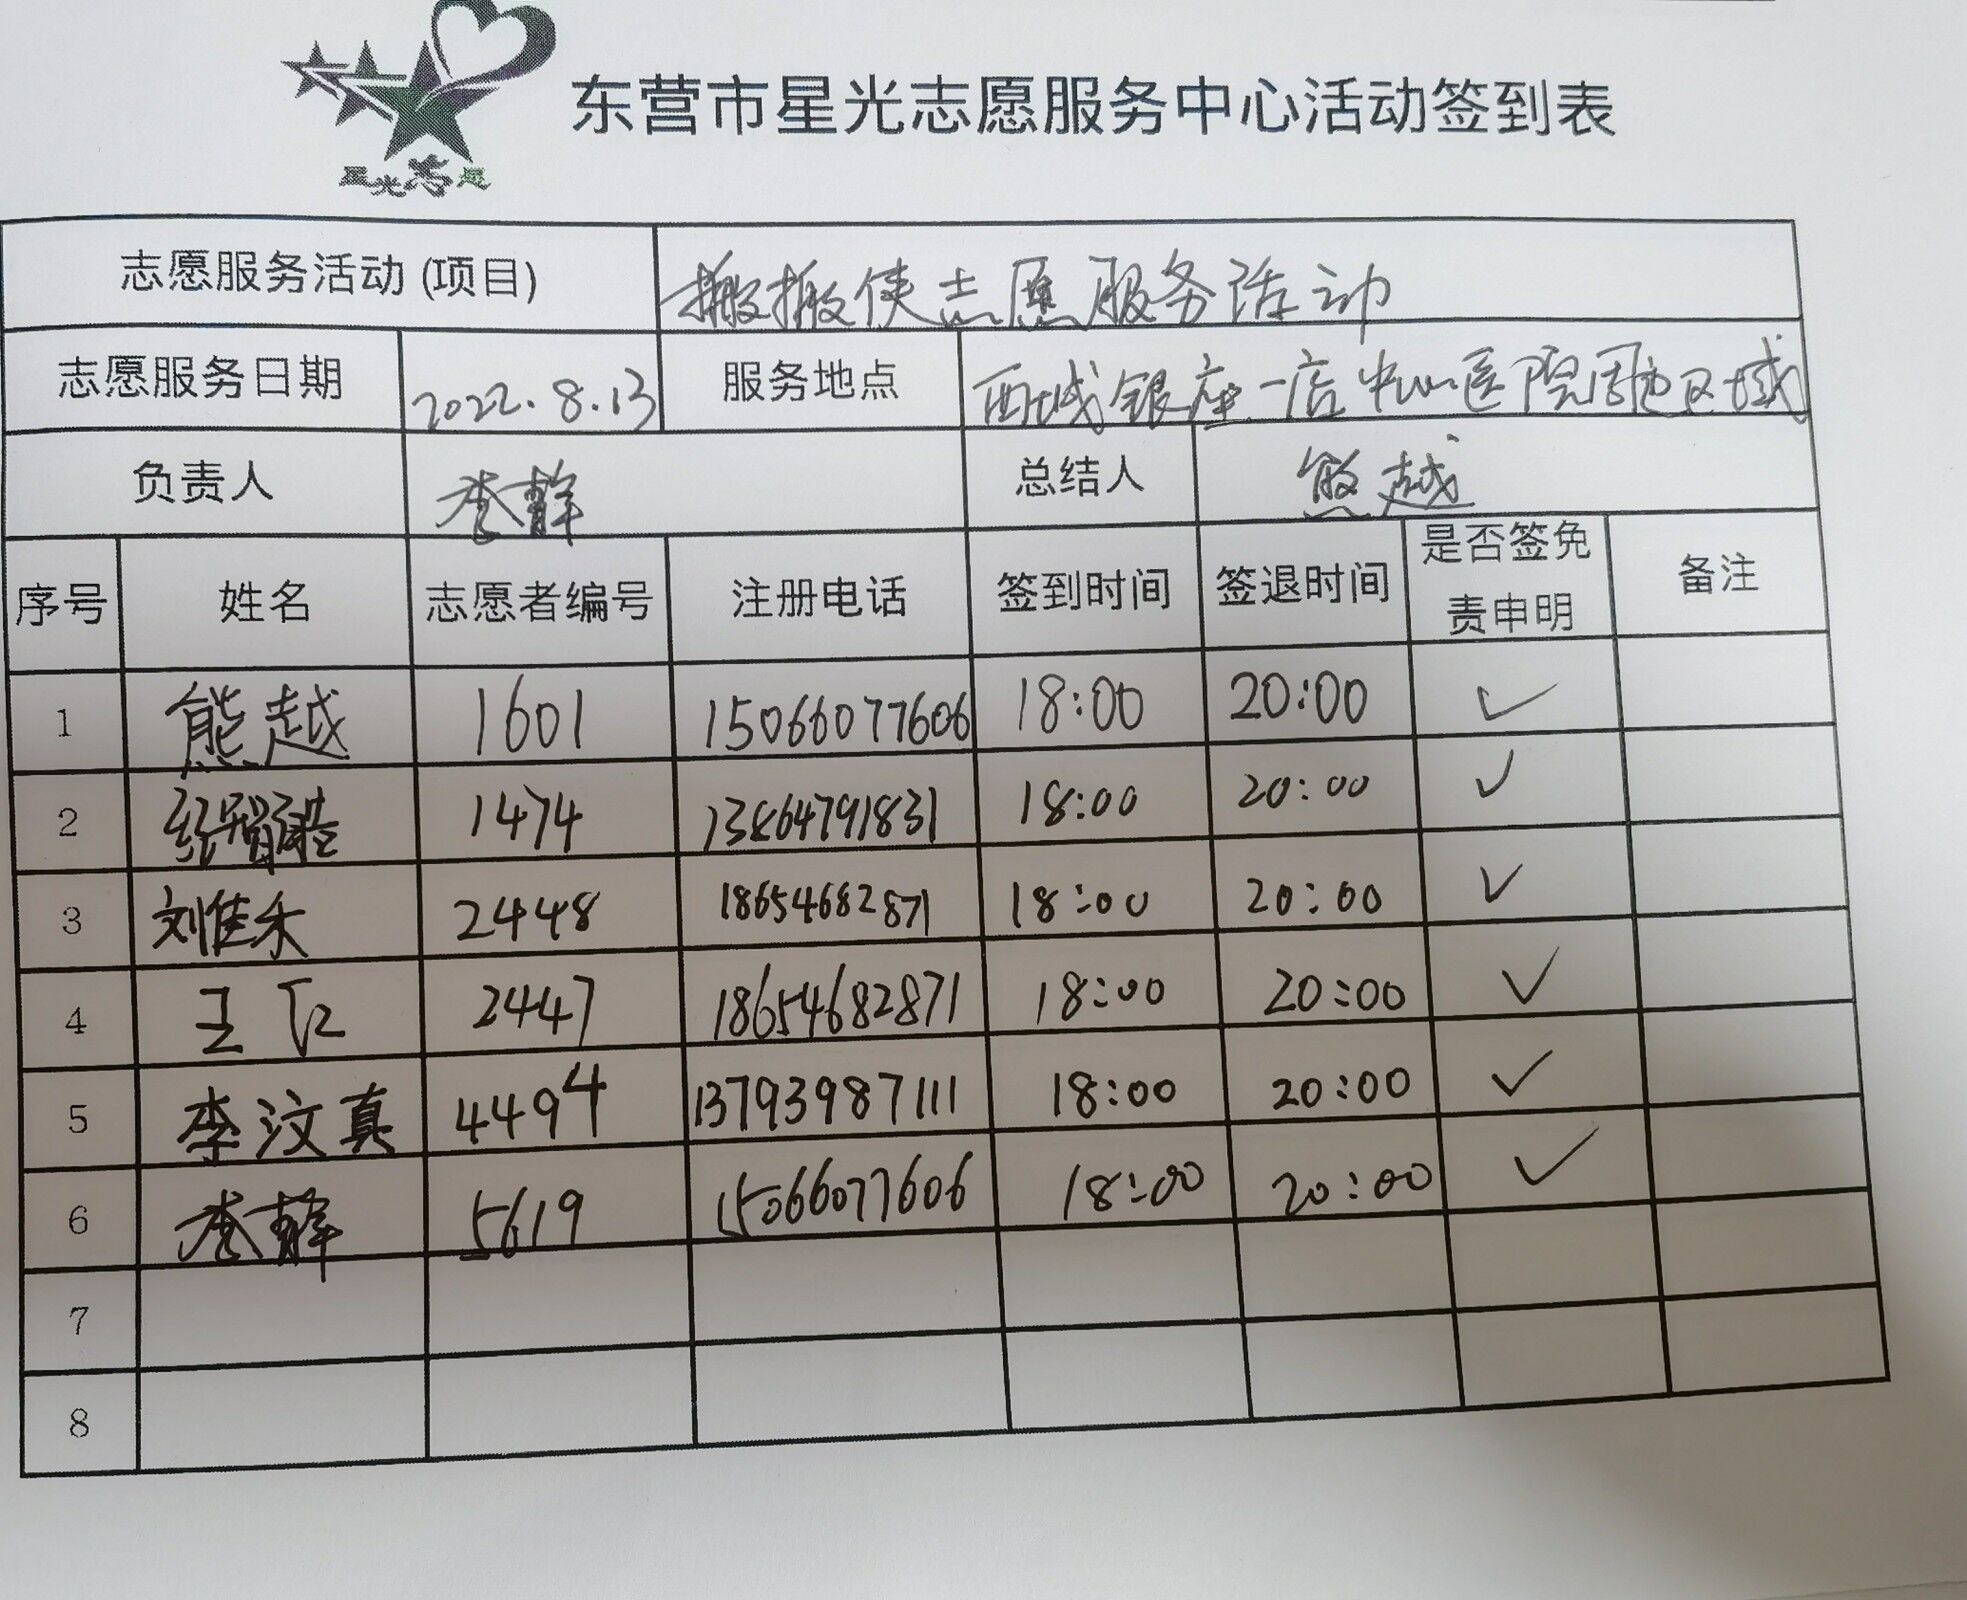 星光志愿
东营市星光志愿服务中心活动签到表
志愿服务活动 (项目) 搬搬侠志愿服务活动
志愿服务日期 2022.8.13 服务地点 西城银座一店中心医院周边区域
负责人 李静 总结人 熊越
序号 姓名 志愿者编号 注册电话 签到时间 签退时间 是否签免责申明 备注
1 熊越 1601 15066077606 18:00 20:00 ✓
2 1474 13864791831 18:00 20:00 ✓
3 刘佳禾 2448 18654682871 18:00 20:00 ✓
4 王 2447 18654682871 18:00 20:00 ✓
5 李汶真 4494 13793987111 18:00 20:00 ✓
6 李静 5619 15066077606 18:00 20:00 ✓
7
8